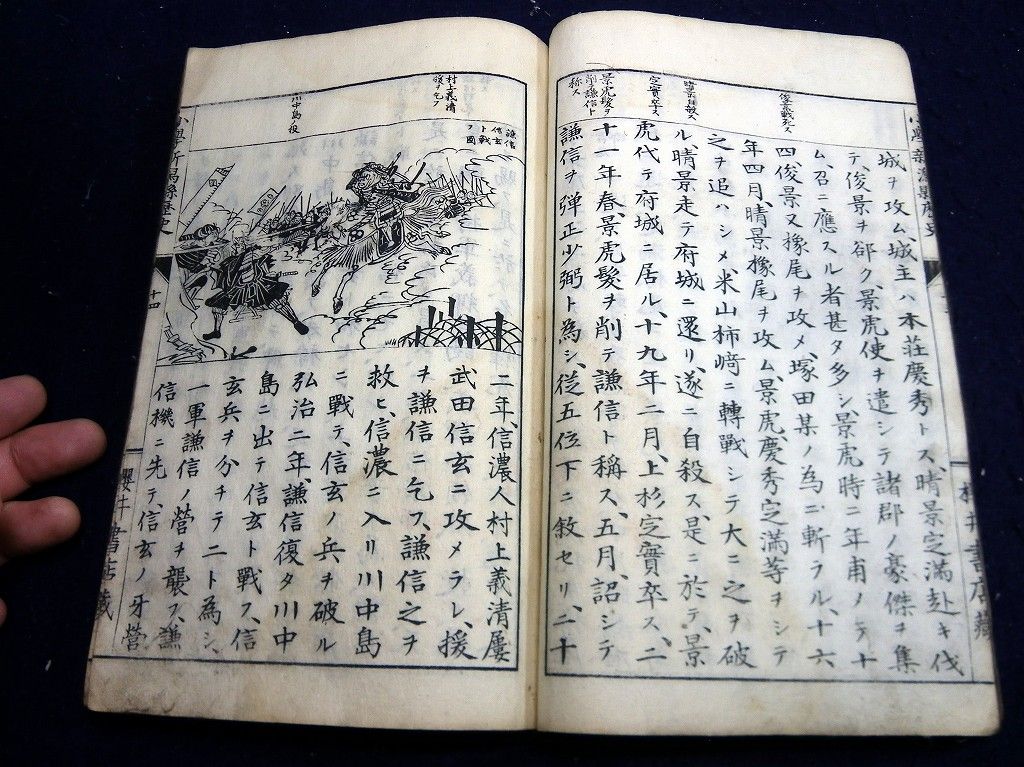 俊景戰死ス
晴景自殺ス
定實卒ス
景虎髮ヲ
削テ謙信ト
称ス
城ヲ攻ム、城主ハ本莊慶秀トス、晴景定滿赴キ伐
テ、俊景ヲ郤ク、景虎使ヲ遣シテ諸郡ノ豪傑ヲ集
ム、召ニ應スル者甚タ多シ、景虎時ニ年甫ノテ十
四、俊景又橡尾ヲ攻メ、塚田某ノ為ニ斬ラル、十六
年四月、晴景橡尾ヲ攻ム、景虎、慶秀定滿等ヲシテ
之ヲ追ハシメ、米山柿﨑ニ轉戰シテ大ニ之ヲ破
ル、晴景走テ府城ニ還リ、遂ニ自殺ス、是ニ於テ、景
虎代テ府城ニ居ル、十九年二月、上杉定實卒ス、二
十一年春、景虎髮ヲ削テ謙信ト稱ス、五月詔シテ
謙信ヲ弾正少弼ト為シ、從五位下ニ敘セリ、二十
小學新潟縣歴史
櫻井書店藏
村上義清
援ヲ乞フ
川中島ノ役
謙信
信玄
ト戰
フ圖
二年、信濃人村上義清屢
武田信玄ニ攻メラレ、援
ヲ謙信ニ乞フ、謙信之ヲ
救ヒ、信濃ニ入リ川中島
ニ戰テ、信玄ノ兵ヲ破ル
弘治二年、謙信復タ川中
島ニ出テ信玄ト戰フ、信
玄兵ヲ分チテ二ト為シ、
一軍謙信ノ營ヲ襲フ、謙
信機ニ先テ、信玄ノ牙營
小學新潟縣歴史
十四
櫻井書店藏